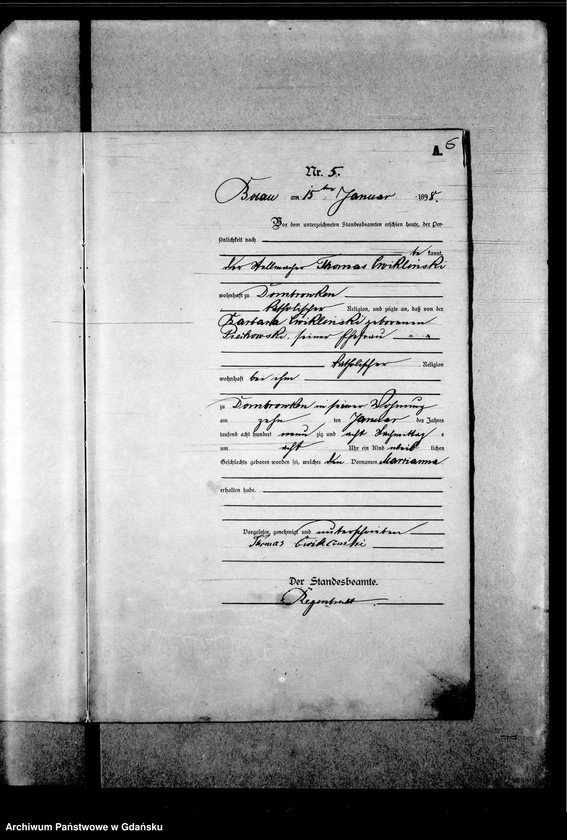 A.
6
Nr. 5.
am 15ten Januar 1898.
Vor dem unterzeichneten Standesbeamten erschien heute, der Per-
sönlichkeit nach
be kannt,
der Stellmacher Thomas Cwiklinski
wohnhaft zu Dombrowken
katholischer Religion, und zeigte an, daß von der
Barbara Cwiklinski geborenen
seiner Ehefrau
katholischer Religion
wohnhaft bei ihm
zu Dombrowken in seiner Wohnung
am zehn ten Januar des Jahres
tausend acht hundert neun zig und acht Nachmittag s
um acht Uhr ein Kind weib lichen
Geschlechts geboren worden sei, welches den Vornamen Marianna
erhalten habe.
Vorgelesen, genehmigt und unterschrieben
Thomas Cwiklinski
Der Standesbeamte.
Regenbrecht
Archiwum Państwowe w Gdańsku